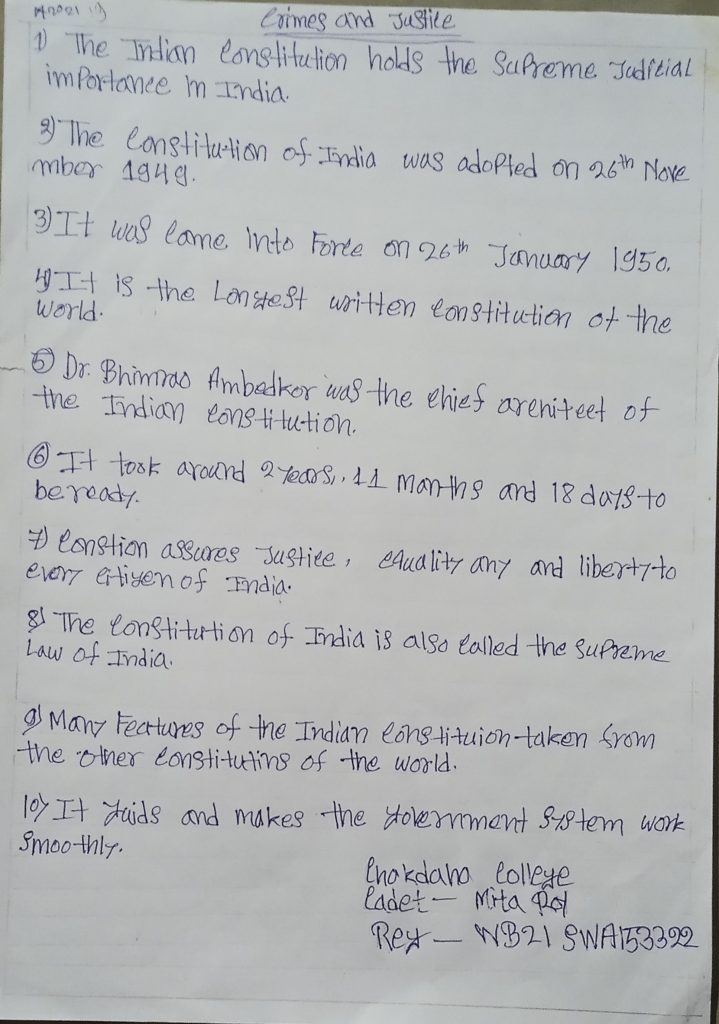 Crimes and Justice
1) The Indian Constitution holds the Supreme Judicial
importance in India.
2) The Constitution of India was adopted on 26th Nove
mber 1949.
3) It was came into Force on 26th January 1950.
4) It is the Longest written constitution of the
world.
5) Dr. Bhimrao Ambedkar was the chief areniteet of
the Indian constitution.
6) It took around 2 years,. 11 months and 18 days to
be ready.
7) Constion assures Justice, equality any and liberty to
every citizen of India.
8) The constitution of India is also called the Supreme
Law of India.
9) Many Features of the Indian constituion taken from
the other constitutins of the world.
10) It guids and makes the government system work
smoothly.
Chakdaha College
Cadet - Mita Roy
Reg - WB21 SWA153392